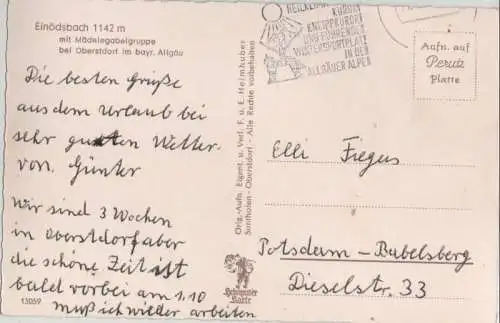 Einödsbach 1142 m
mit Mädelegabelgruppe
bei Oberstdorf im bayr. Allgäu
Die besten Grüße
aus dem Urlaub bei
sehr guten Wetter
von. Günter
Wir sind 3 Wochen
in Oberstdorf aber
die schöne Zeit ist
bald vorbei am 1.10
muß ich wieder arbeiten
13059
Orig.-Aufn. Eigent. u. Verl. F. u. E. Heimhuber
Sonthofen - Oberstdorf - Alle Rechte vorbehalten
KURORT
KNEIPPKURORT
UND FÜHRENDER
WINTERSPORTPLATZ
IN DEN
ALLGÄUER ALPEN
Aufn. auf
Perutz
Platte
Elli Fiegus
Potsdam-Babelsberg
Dieselstr. 33
Heimhuber
Karte